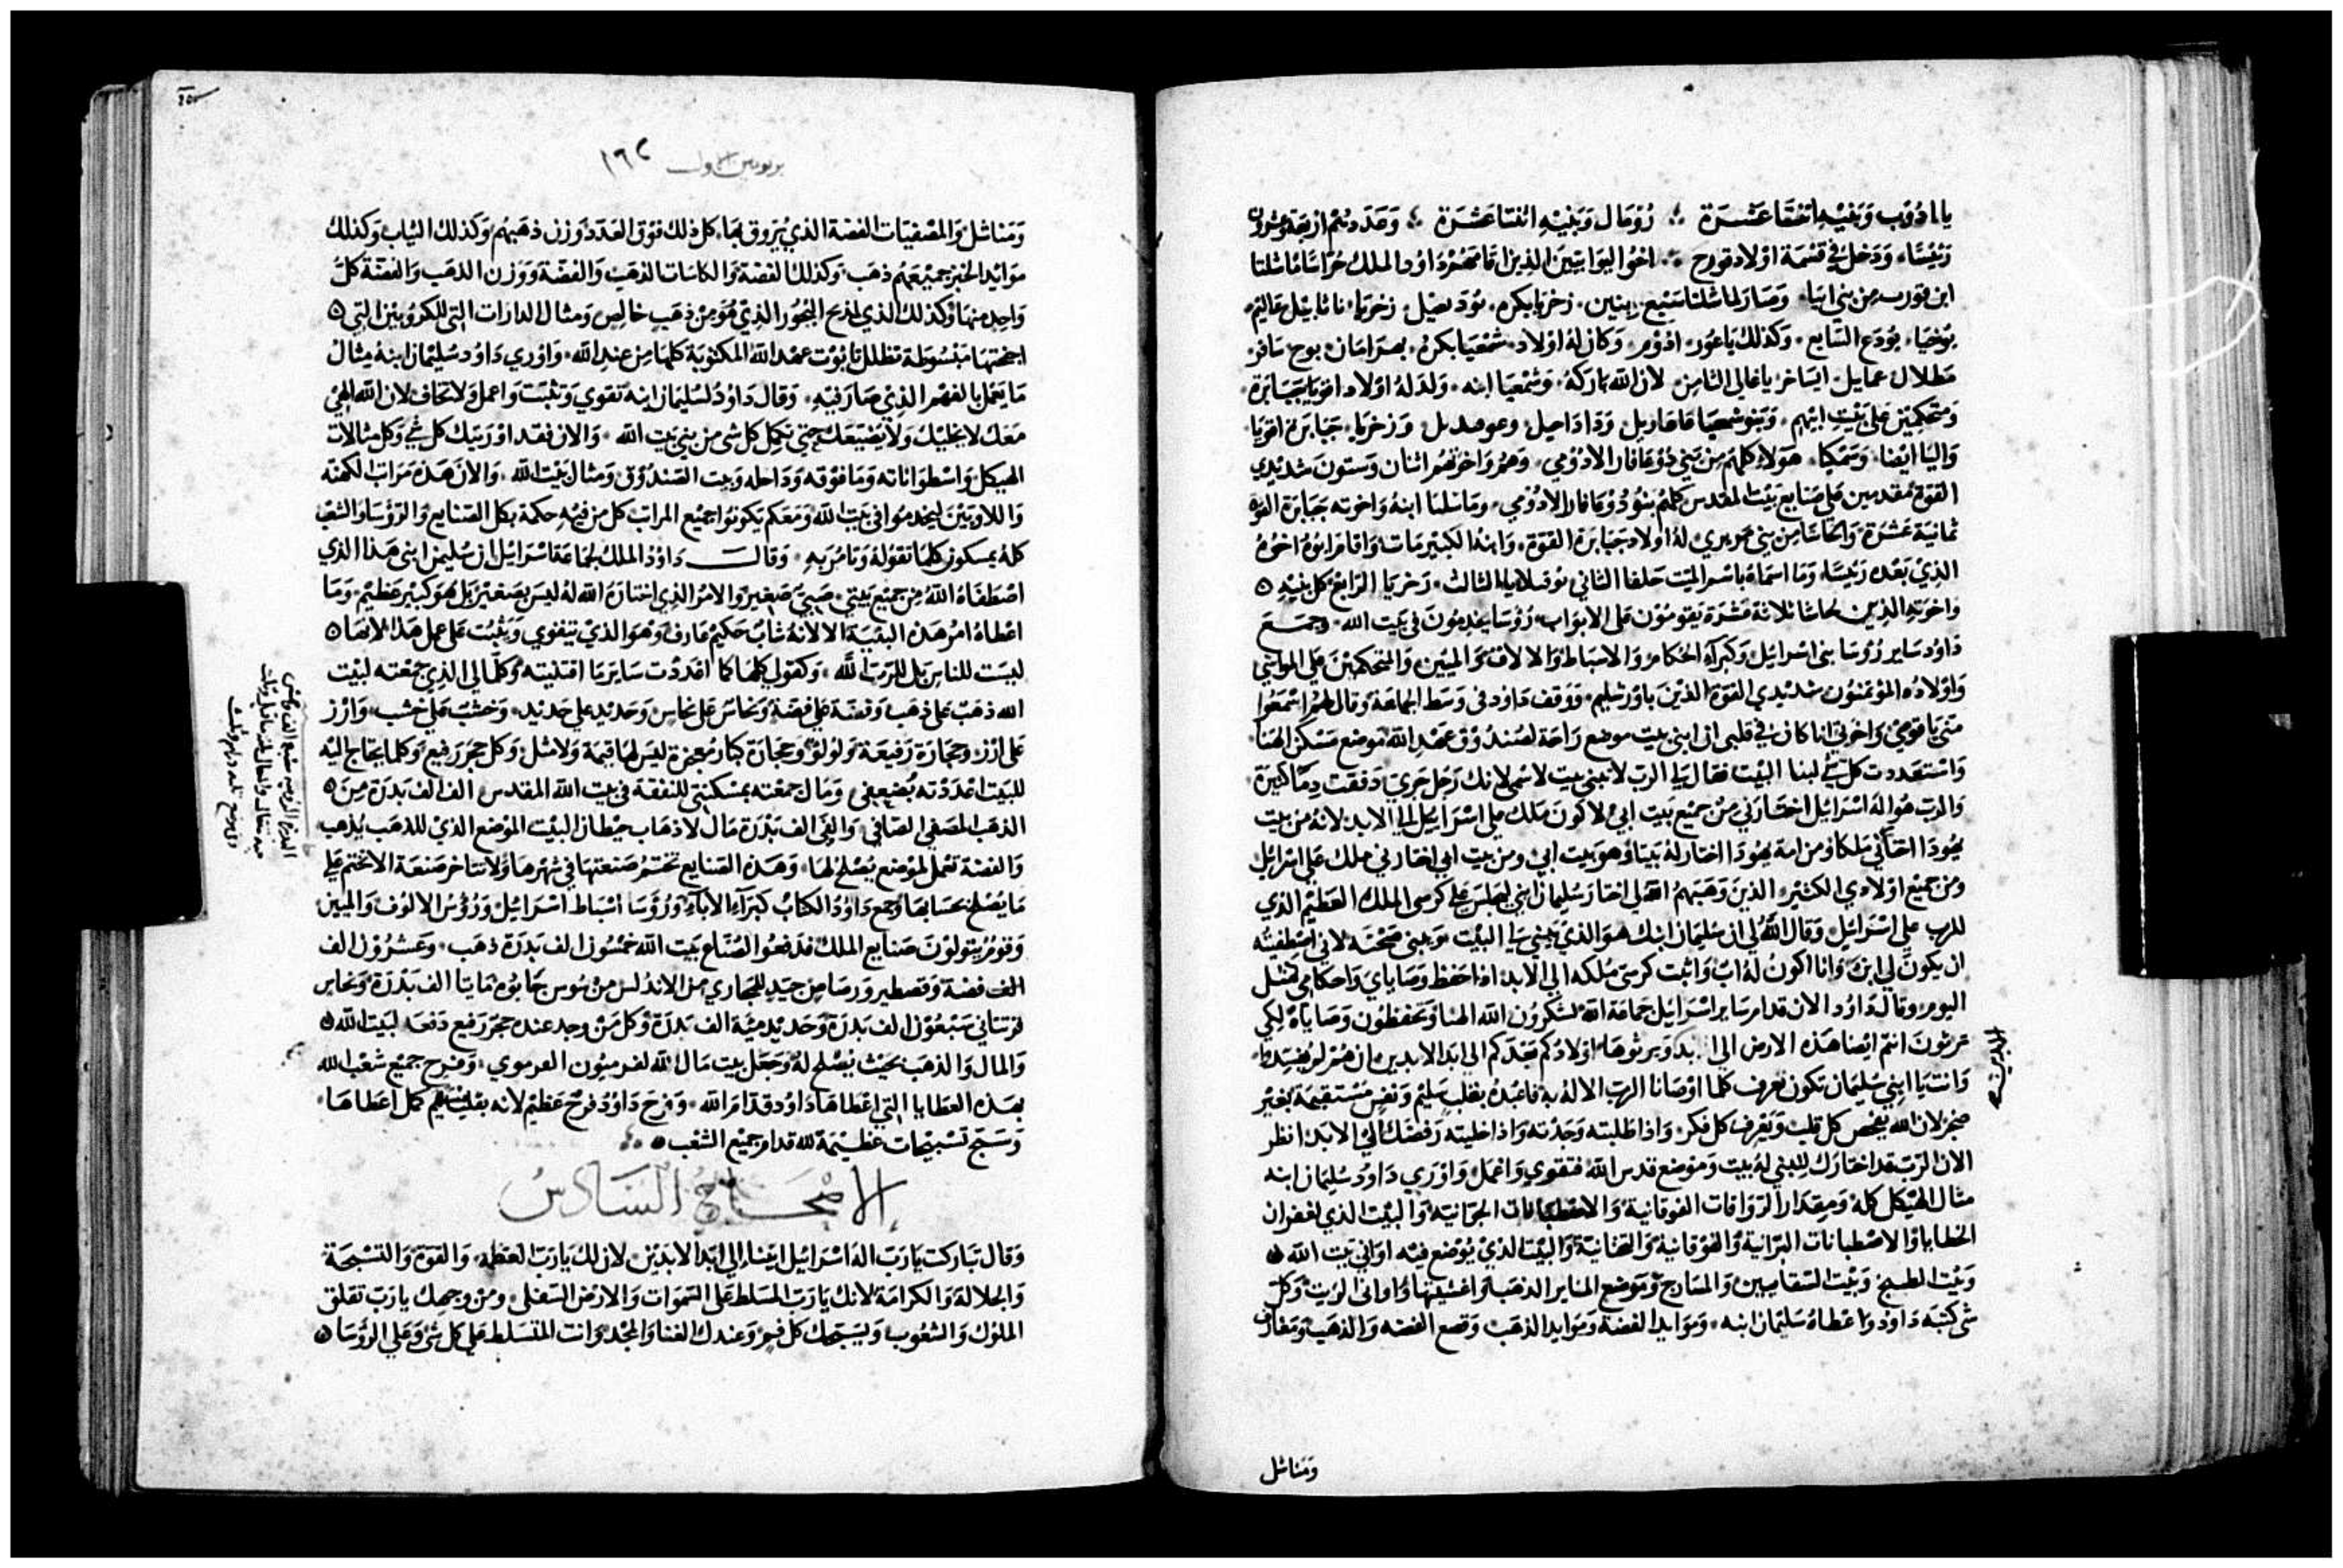 يالادوب وبنيه اثنتا عشرة ؞ زومال وبنيه اثنتا عشرة ؞ وعددهم اربعة وعشرون
رئيسًا، ودخل في قسمة اولاد قورح ؞ اخوا البوابين الذين اقامهم داود الملك حراسًا ماشلتا
ابن قورب من بني ابيا، وصار لماشلتا سبع بنين، زخريا بكره، يود عيل، زخريا، ناثانيل عاليم،
يوخيا، يودع السابع، وكذلك ياعور ادوم، وكان له اولاد شمعيا بكره،
عمايل، ايساخر ياغالي الثامن، لان الله باركه، وشمعيا ابنه، ولد له اولاد اقويا جبابرة،
ومتحكمين على بيت ابيهم، وبنو شمعيا وزخريا، جبابرة اقويا،
واليا ايضا، وسمكيا، هولاء كلهم من بني ذوعافار الادومي، وهم واخوتهم اثنان وستون شديدي
القوة مقدمين على صنايع بيت المقدس كلهم بنو ذوعافار الادومي، وماشلتا ابنه واخوته جبابرة القوة
ثمانية عشرة، والحاشا من بني له اولاد جبابرة القوة، وابنه الكبير مات واقام ابوه اخوه
الذي بعده رئيسًا، وما اسماه باسم الميت حلقا الثاني الثالث، زخريا الرابع كل بنيه
واخوته الذين لحاشا ثلاثة عشرة يقومون على الابواب رؤسا يخدمون في بيت الله، وجمع
داود ساير رؤسا بني اسرائيل وكبراء الحكام والاسباط والالاف والميين والمتحكمين على المواشي
واولاده المؤتمنون شديدي القوة الذين باورشليم، ووقف داود في وسط الجماعة وقال لهم اسمعوا
مني يا قومي واخوتي انا كان في قلبي ان ابني بيت موضع راحة لصندوق عهد الله موضع مسكن الهنا،
واستعددت كل شي لبنا البيت فقال لي الرب لا تبني بيت لاسمي لانك رجل حربي دفقت دمًا كثيرة
والرب هو اله اسرائيل اختارني من جميع بيت ابي لاكون ملك على اسرائيل الى الابد لانه من بيت
يهودا اختار ملكا ومن امة يهودا اختار له بيتا وهو بيت ابي ومن بيت ابي اختارني ملك على اسرائيل
ومن جميع اولادي الكثير الذين وهبهم الله لي اختار سليمان ابني ليجلس على كرسي الملك العظيم الذي
للرب على اسرائيل، وقال الله لي ان سليمان ابنك هو الذي يبني لي البيت ويبني صحنه لاني اصطفيته
ان يكون لي ابن وانا اكون له اب واثبت كرسي ملكه الى الابد اذا حفظ وصاياي واحكامي كمثل
اليوم وقال داود الان قدام ساير اسرائيل جماعة الله لتشكرون الله الهنا وتحفظون وصاياه لكي
ترثون انتم ايضا هذه الارض الى الابد ويرثوها اولادكم بعدكم الى ابد الابدين ان هم لم يفسدوا،
وانت يا ابني سليمان تكون تعرف كلما اوصانا الرب الاله به فاعبده بقلب سليم ونفس مستقيمة بغير
ضجر لان الله يفحص كل قلب ويعرف كل فكر، واذا طلبته وجدته واذا خليته رفضك الى الابد، انظر
الان الرب قد اختارك لتبني له بيت وموضع قدس الله، فتقوى واعمل، واوري داود سليمان ابنه
مثال الهيكل كله ومقدار الرواقات الفوقانية والاصطبانات الجوانية والبيت الذي لغفران
الخطايا والاصطبانات البرانية والفوقانية والتحتانية والبيت الذي يوضع فيه اواني بيت الله
وبيت الطبيخ وبيت السقايين والمسارج وموضع المناير الذهب واغشيتها واواني الزيت وكل
شي كتبه داود واعطاه سليمان ابنه، وموايد الفضة وموايد الذهب وقصع الفضه والذهب ومغارف
ومناشل
١٦٢
ومناشل والمصفيات الفضة الذي يروق بها، كل ذلك فوق العدد وزن ذهبهم وكذلك الثياب وكذلك
موايد الخبز جميعهم ذهب، وكذلك الفضة والكاسات الذهب والفضة ووزن الذهب والفضة كل
واحد منها وكذلك الذي لمذبح البخور الذي هو من ذهب خالص ومثال الدارات التي للكروبيين التي
اجنحتها مبسوطة تظلل تابوت عهد الله المكتوبة كلها من عند الله، واوري داود سليمان ابنه مثال
ما يعمل بالفهم الذي صار فيه، وقال داود لسليمان ابنه تقوي وتثبت واعمل ولا تخاف لان الله الهي
معك لا يخليك ولا يضيعك حتى تكمل كل شي من بني بيت الله، والان فقد اوريتك كل شي وكل مثالات
الهيكل واسطواناته وما فوقه وداخله وبيت الصندوق ومثال بيت الله، والان هذه مراتب الكهنة
واللاويين ليخدموا في بيت الله ومعكم يكونوا جميع المراتب كل من فيه حكمة بكل الصنايع والرؤسا والشعب
كله يمسكون كلما تقوله وتامر به، وقال داود الملك لجماعة اسرائيل ان سليمن ابني هذا الذي
اصطفاه الله من جميع بيتي، صبي صغير والامر الذي اختاره الله له ليس بصغير بل هو كبير عظيم، وما
اعطاه امر هذه البقية الا لانه شاب حكيم عارف وهو الذي يتقوي ويثبت على عمل هذا لانها
ليست للناس بل للرب الله، وكقولي كلها كما اعددت ساير ما اقتنيته وكمالي الذي جمعته لبيت
الله ذهب على ذهب وفضة على فضة ونحاس على نحاس وحديد على حديد، وخشب على خشب، وارز
على ارز، وحجارة رفيعة ولولؤ وحجارة كبار معجزة ليس لها قيمة ولا مثل، وكل حجر رفيع وكلما يحتاج اليه
للبيت اعددته بضعفي، ومال جمعته بمسكنتي للنفقة في بيت الله المقدس الف الف بدرة من
الذهب المصفي الصافي، والفي الف بدرة مال لاذهاب حيطان البيت الموضع الذي للذهب يذهب
والفضة تعمل لموضع يصلح لها، وهذه الصنايع تختم صنعتها في شهرها ولا تتاخر صنعة الا تختم على
ما يصلح بحسابها، وجمع داود الكتاب كبراء الاباء ورؤسا اسباط اسرائيل ورؤس الالوف والميين
وقوم يتولون صنايع الملك فدفعوا لصناع بيت الله خمسون الف بدرة ذهب، وعشرون الف
الف فضة وقصطير ورصاص جيد للمجاري من الاندلس من سوس جابوه ثمانيا الف بدرة ونحاس
سبعون الف بدرة وحديد مية الف بدرة وكل من وجد عنده حجر رفيع دفعه لبيت الله
والمال والذهب بحيث يصلح له وجعل بيت مال الله لفرميون الفرموي، وفرح جميع شعب الله
بهذه العطايا التي اعطاها داود قدام الله، وفرح داود فرح عظيم لانه بقلب سليم كمل اعطاها،
وسبح تسبيحات عظيمة لله قدام جميع الشعب
الاصحاح السادس
وقال تباركت يا رب اله اسرائيل ابينا، الى ابد الابدين، لان لك يا رب العظمة، والقوة والتسبحة
والجلالة والكرامة لانك يا رب المسلط على السموات والارض السفلى، ومن وجهك يا رب تقلق
الملوك والشعوب ويسبحك كل فم وعندك الغنا والمجد، وانت المتسلط على كل شي وعلى الرؤسا